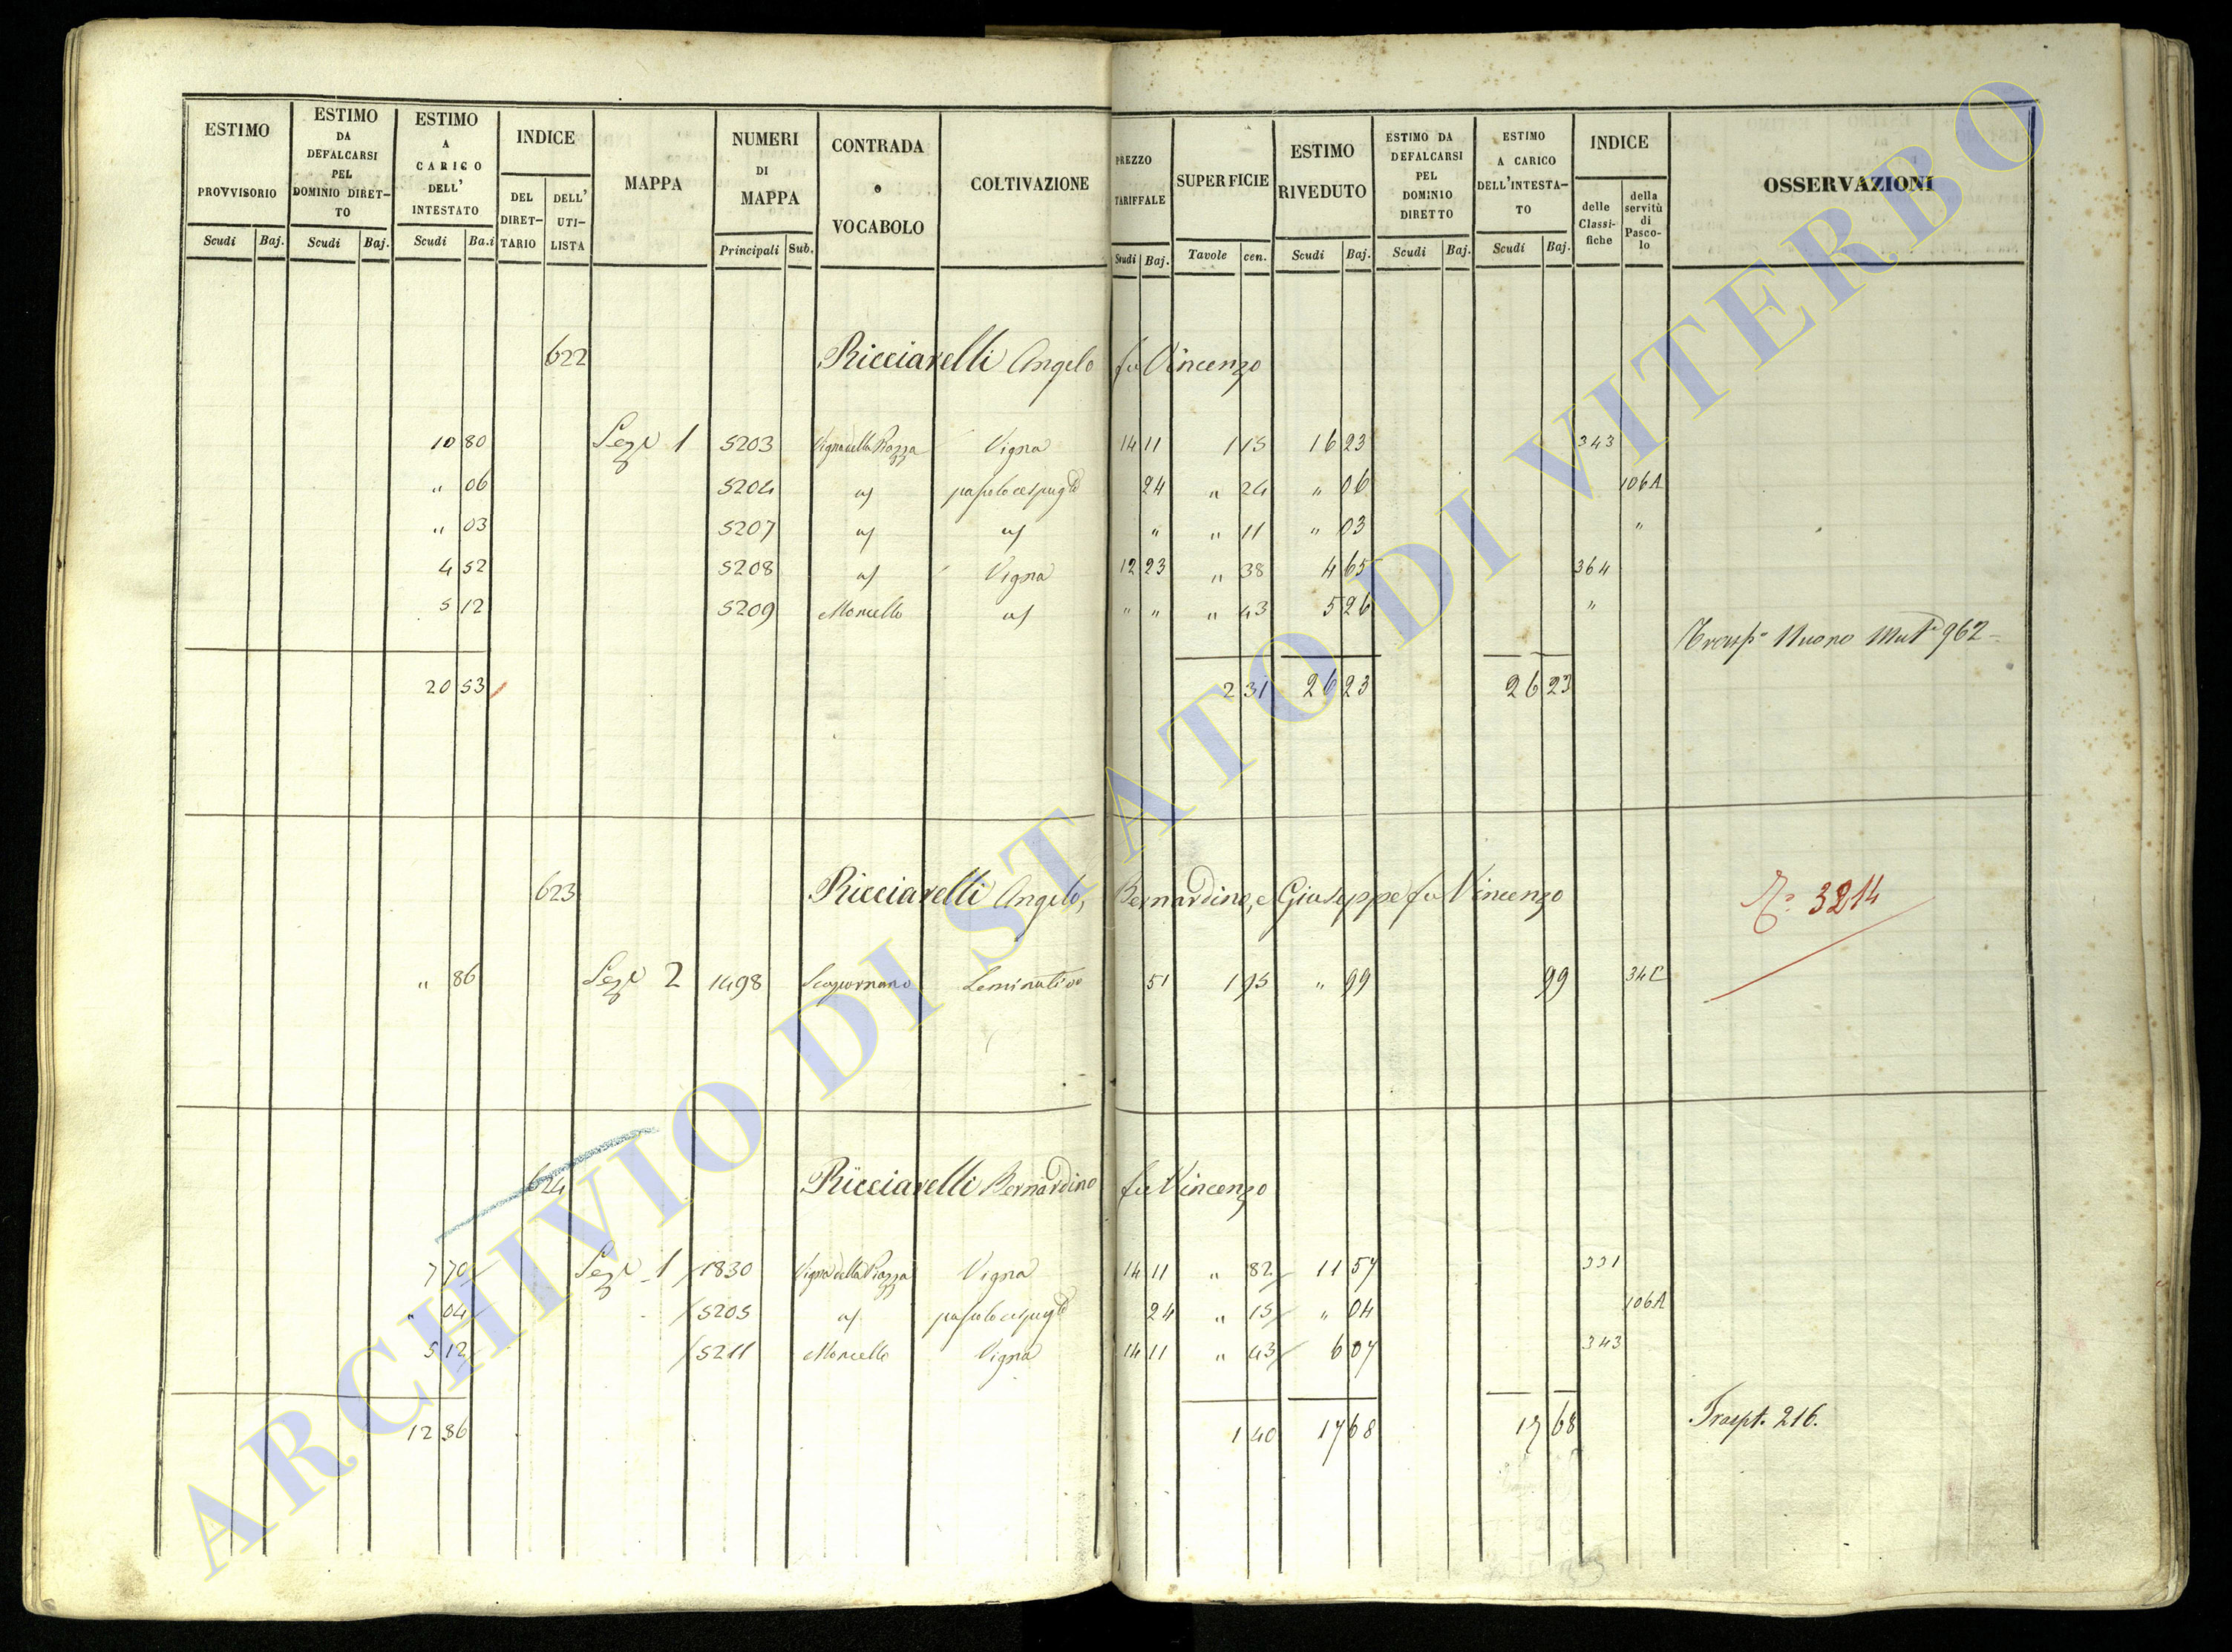 ESTIMO PROVVISORIO Scudi Baj.
ESTIMO DA DEFALCARSI PEL DOMINIO DIRETTO Scudi Baj.
ESTIMO A CARICO DELL' INTESTATO Scudi Ba.i
INDICE DEL DIRETTARIO DELL' UTILISTA
MAPPA
NUMERI DI MAPPA Principali Sub.
CONTRADA o VOCABOLO
COLTIVAZIONE
PREZZO TARIFFALE Scudi Baj.
SUPERFICIE Tavole cen.
ESTIMO RIVEDUTO Scudi Baj.
ESTIMO DA DEFALCARSI PEL DOMINIO DIRETTO Scudi Baj.
ESTIMO A CARICO DELL'INTESTATO Scudi Baj.
INDICE delle Classifiche della servitù di Pascolo
OSSERVAZIONI
622 Ricciarelli Angelo fu Vincenzo
10 80 Sezе 1 5203 Vigna della Piazza Vigna 14 11 1 15 16 23 343
" 06 5204 " 24 " 24 " 06 106A
" 03 5207 " " 11 " 03 "
4 52 5208 Vigna 12 23 " 38 4 65 364
5 12 5209 Moncello " " " 43 5 26 "
Nuono Mut.e 962
20 53 2 31 26 23 26 23
623 Ricciarelli Angelo, Bernardino, e Giuseppe fu Vincenzo
3214
" 86 Seze 2 1498 Seminativo 51 1 95 " 99 99 34C
624 Ricciarelli Bernardino fu Vincenzo
7 70 Seze 1 1830 Vigna della Piazza Vigna 14 11 " 82 11 57 331
" 04 5205 24 " 15 " 04 106A
5 12 5211 Moncello Vigna 14 11 " 43 6 07 343
12 86 1 40 17 68 17 68
Traspt. 216.
ARCHIVIO DI STATO DI VITERBO